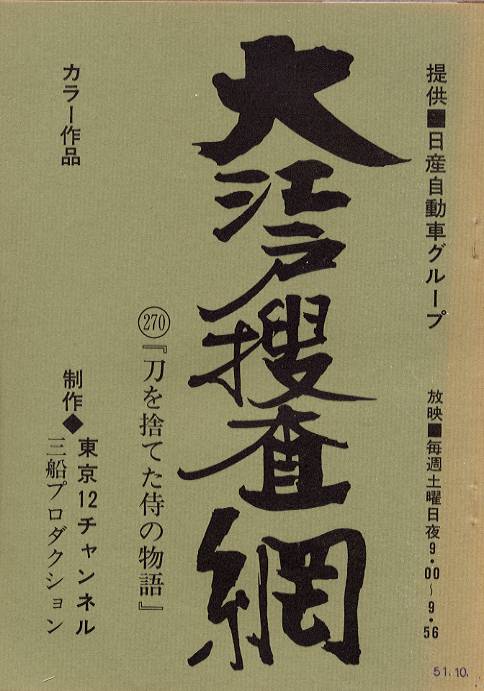 提供■日産自動車グループ
放映■毎週土曜日夜9・00〜9・56
大江戸捜査網
270『刀を捨てた侍の物語』
カラー作品
制作◆東京12チャンネル
三船プロダクション
51.10.